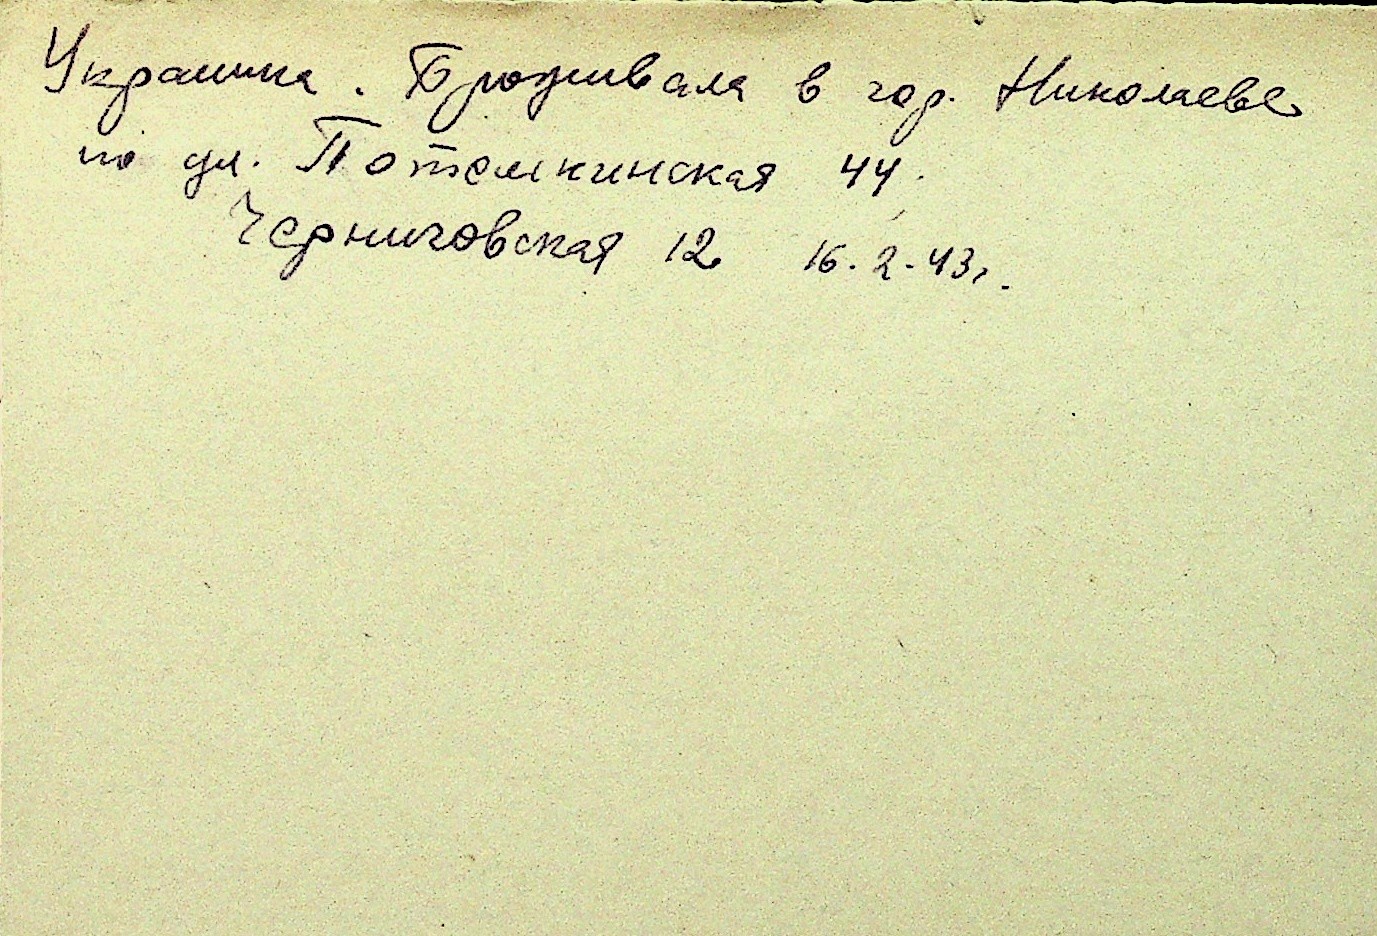 Украинка. Проживала в гор. Николаеве
по ул. Потемкинская 44.
Черниговская 12 16.2.43г.